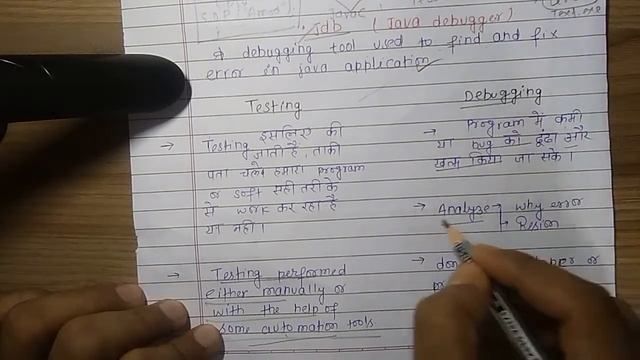 . Jdb ( Java debugger)
debugging tool used to find and fix
error in java application
Testing
→ Testing इसलिए की
जाती है, ताकी
पता चले हमारा program
or soft सही तरीके
से work कर रहा है
या नही।
→ Testing performed
either manually or
with the help of
some automation tools
Debugging
→ Program में कमी
या bug को ढूंढा और
खत्म किया जा सके।
→ Analyze → why error
→ Resion
→ don